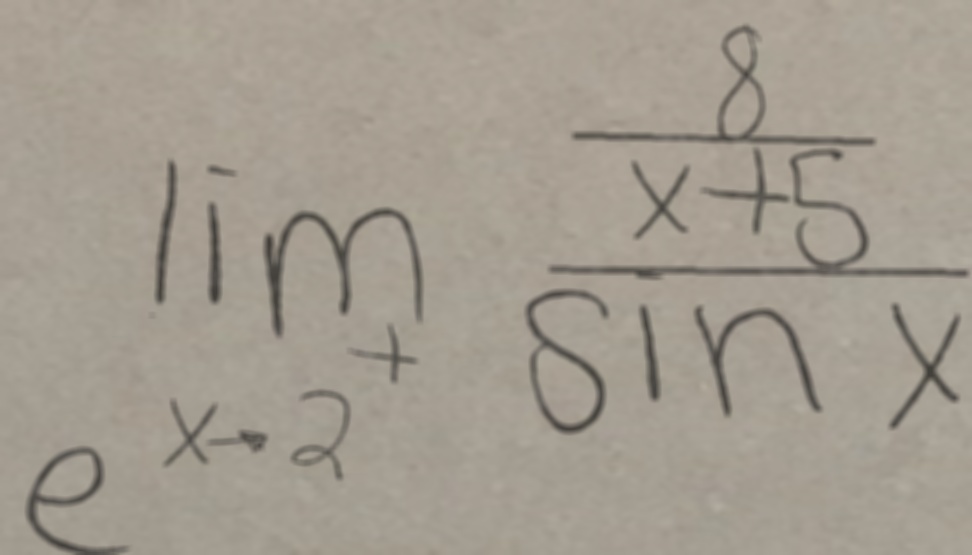 e^{\lim_{x \to 2^+} \frac{\frac{8}{x+5}}{\sin x}}